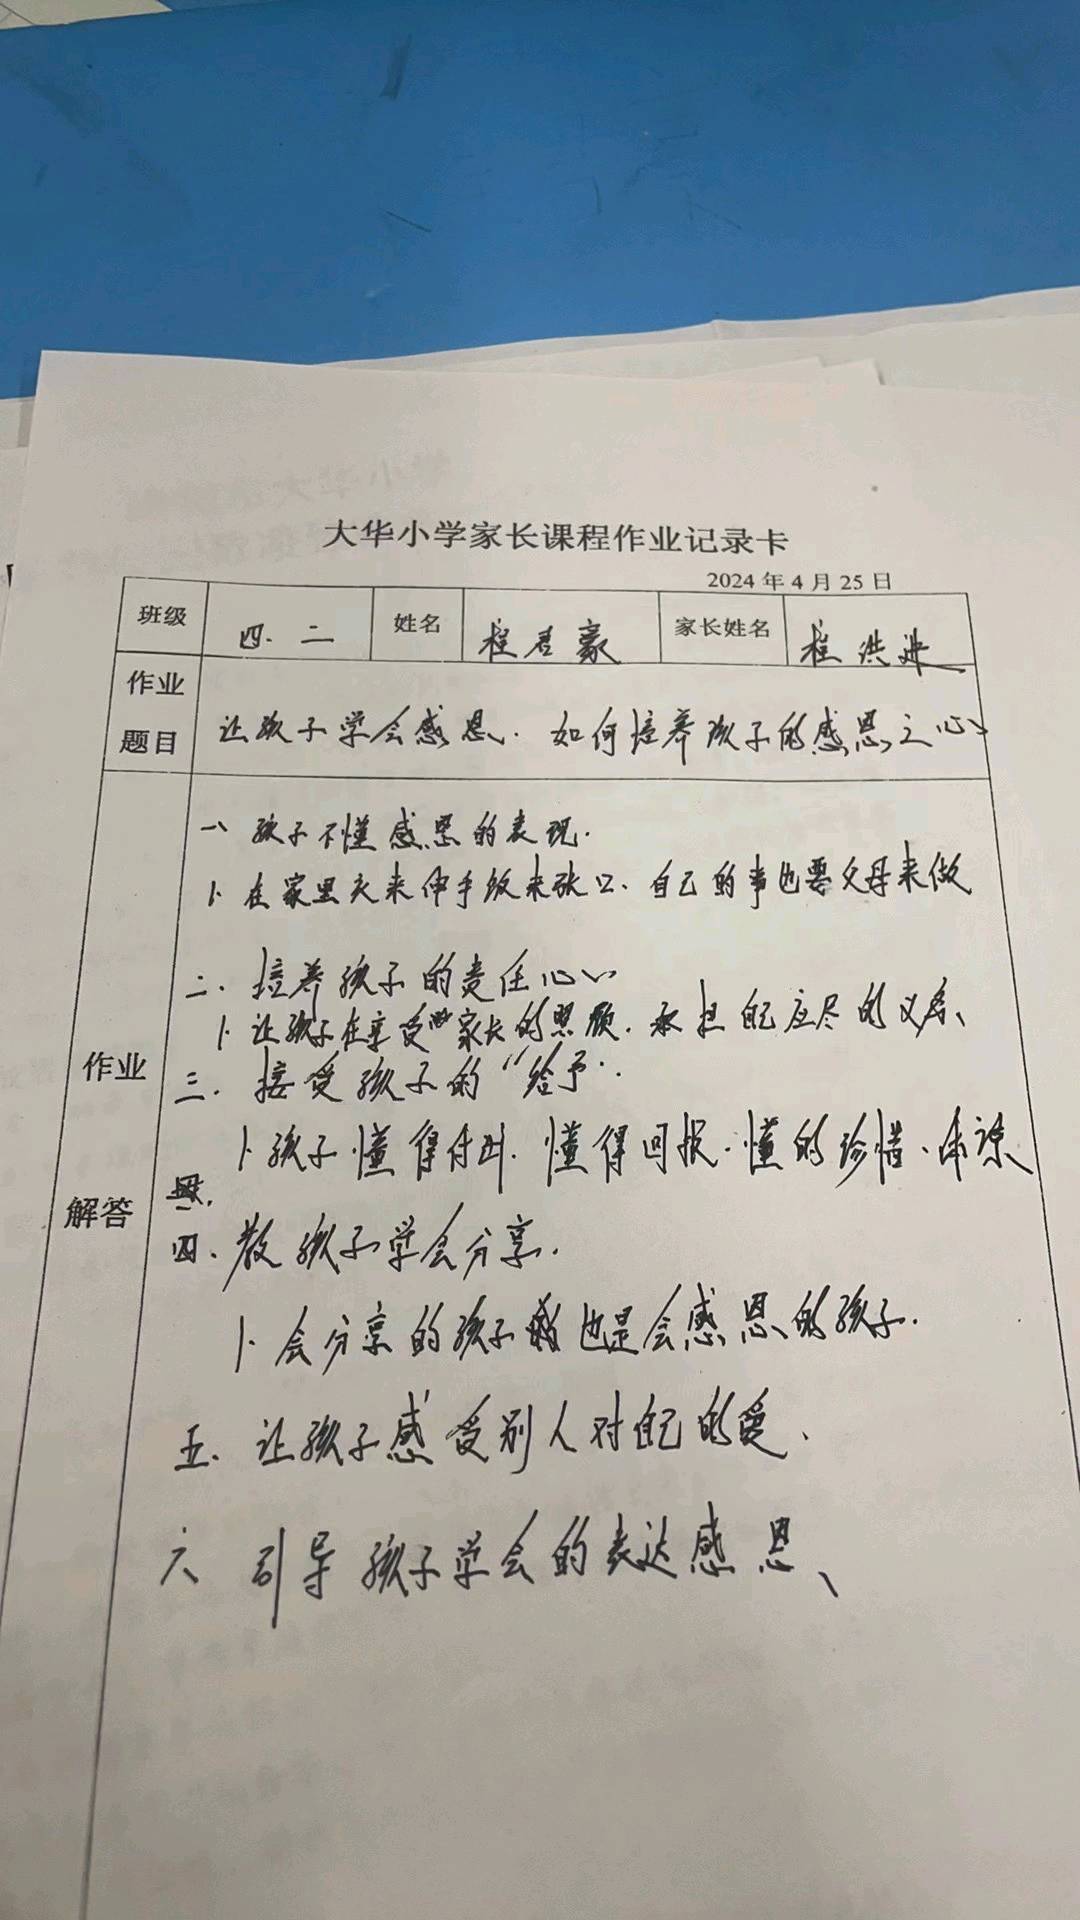 大华小学家长课程作业记录卡
2024年4月25日
班级 四.二 姓名 程君豪 家长姓名 程洪进
作业题目 让孩子学会感恩.如何培养孩子的感恩之心
作业解答
一、孩子不懂感恩的表现.
1.在家里衣来伸手饭来张口、自己的事也要父母来做
二.培养孩子的责任心
1.让孩子在享受家长的照顾.承担自己应尽的义务、
三.接受孩子的“给予”.
1.孩子懂得付出.懂得回报.懂的珍惜、体谅
四.教孩子学会分享.
1.会分享的孩子也是会感恩的孩子.
五.让孩子感受别人对自己的爱.
六 引导孩子学会的表达感恩、